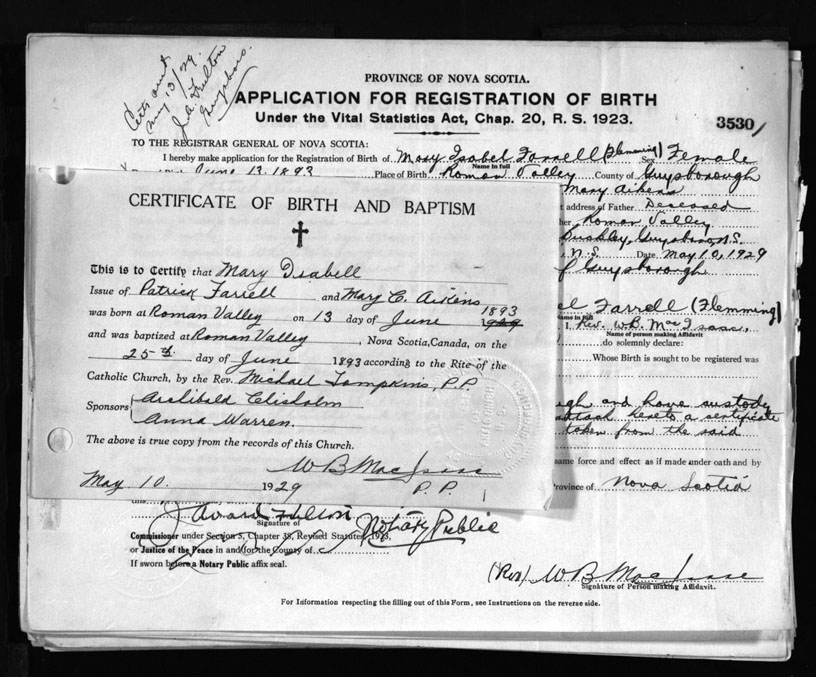 Certs sent
May 13/29.
J.A. Fulton
Guysboro.
PROVINCE OF NOVA SCOTIA.
APPLICATION FOR REGISTRATION OF BIRTH
Under the Vital Statistics Act, Chap. 20, R. S. 1923.
3530
TO THE REGISTRAR GENERAL OF NOVA SCOTIA:
I hereby make application for the Registration of Birth of Mary Isobel Farrell (Flemming) Sex Female
Name in full
June 13, 1893 Place of Birth Roman Valley County of Guysborough
Mary Aikens
address of Father Deceased
her Roman Valley
Guysboro, N.S.
N.S. Date May 10, 1929
of Guysborough
el Farrell (Flemming)
me in full
I, Rev. W.B. MacIsaac,
Name of person making Affidavit
do solemnly declare:
Whose Birth is sought to be registered was
gh and have custody
attach hereto a certificate
taken from the said
same force and effect as if made under oath and by
Province of Nova Scotia
CERTIFICATE OF BIRTH AND BAPTISM
This is to Certify that Mary Isabell
Issue of Patrick Farrell and Mary C. Aikens
was born at Roman Valley on 13 day of June 1893
and was baptized at Roman Valley, Nova Scotia, Canada, on the
25th day of June 1893 according to the Rite of the
Catholic Church, by the Rev. Michael Tompkins, P.P.
Sponsors Archibald Chisholm
Anna Warren.
The above is true copy from the records of this Church.
W B MacIsaac
May 10 1929 P.P.
Notary Public
Signature of
Commissioner under Section 5, Chapter 38, Revised Statutes 1923,
or Justice of the Peace in and for the County of
If sworn before a Notary Public affix seal.
(Rev) W B MacIsaac
Signature of Person making Affidavit.
For Information respecting the filling out of this Form, see Instructions on the reverse side.